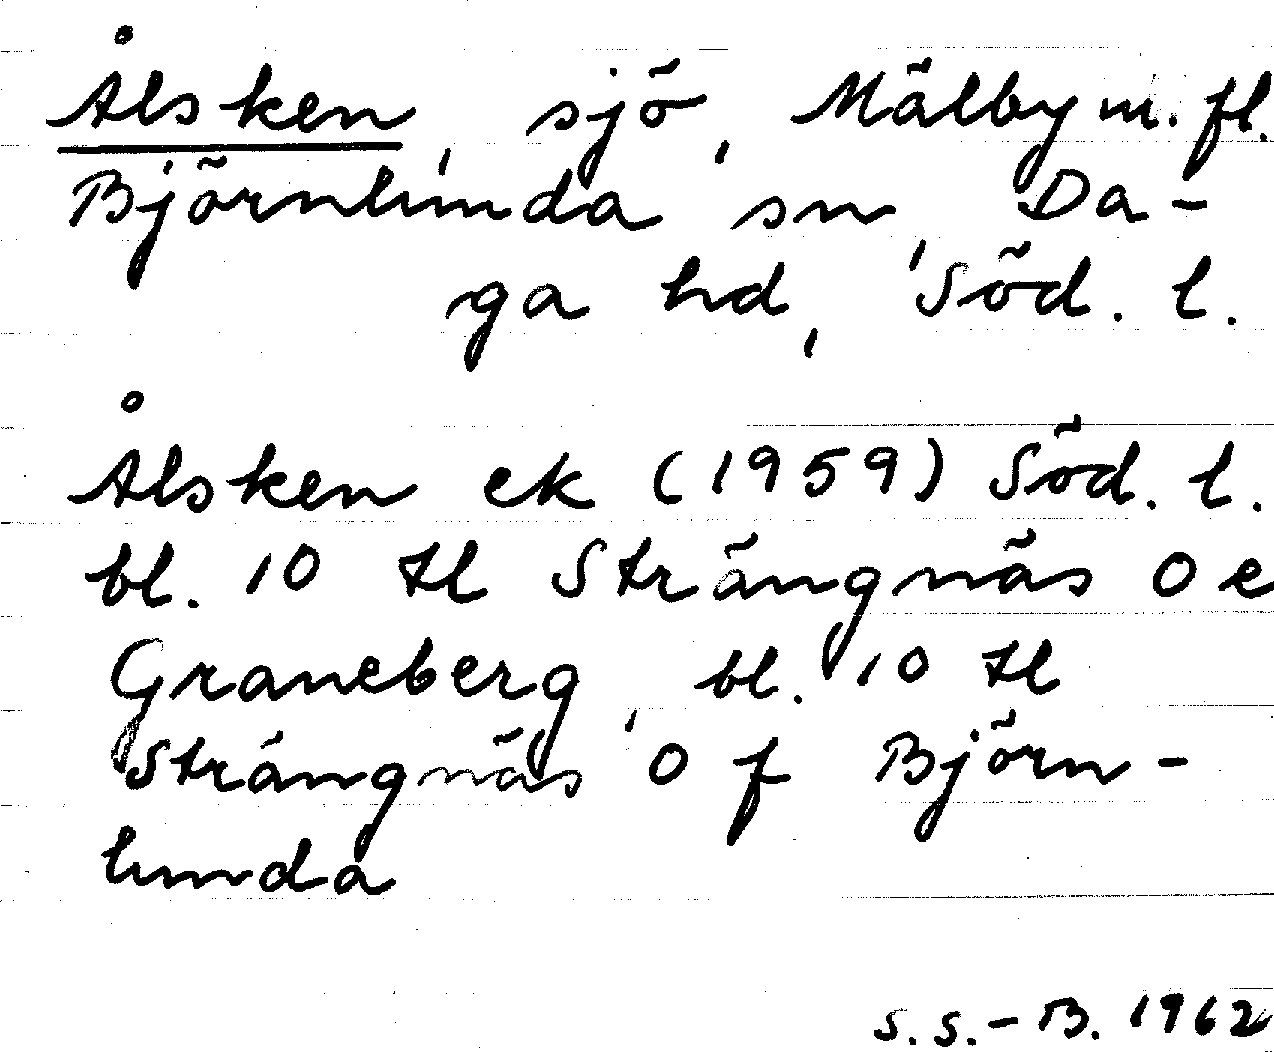 Ålsken, sjö, Mälby m. fl.
Björnlunda sn, Da-
ga hd, Söd. l.
Ålsken ek (1959) Söd. l.
bl. 10 tl Strängnäs O e
Graneberg, bl. 10 tl
Strängnäs O f Björn-
lunda
S.S.-B. 1962